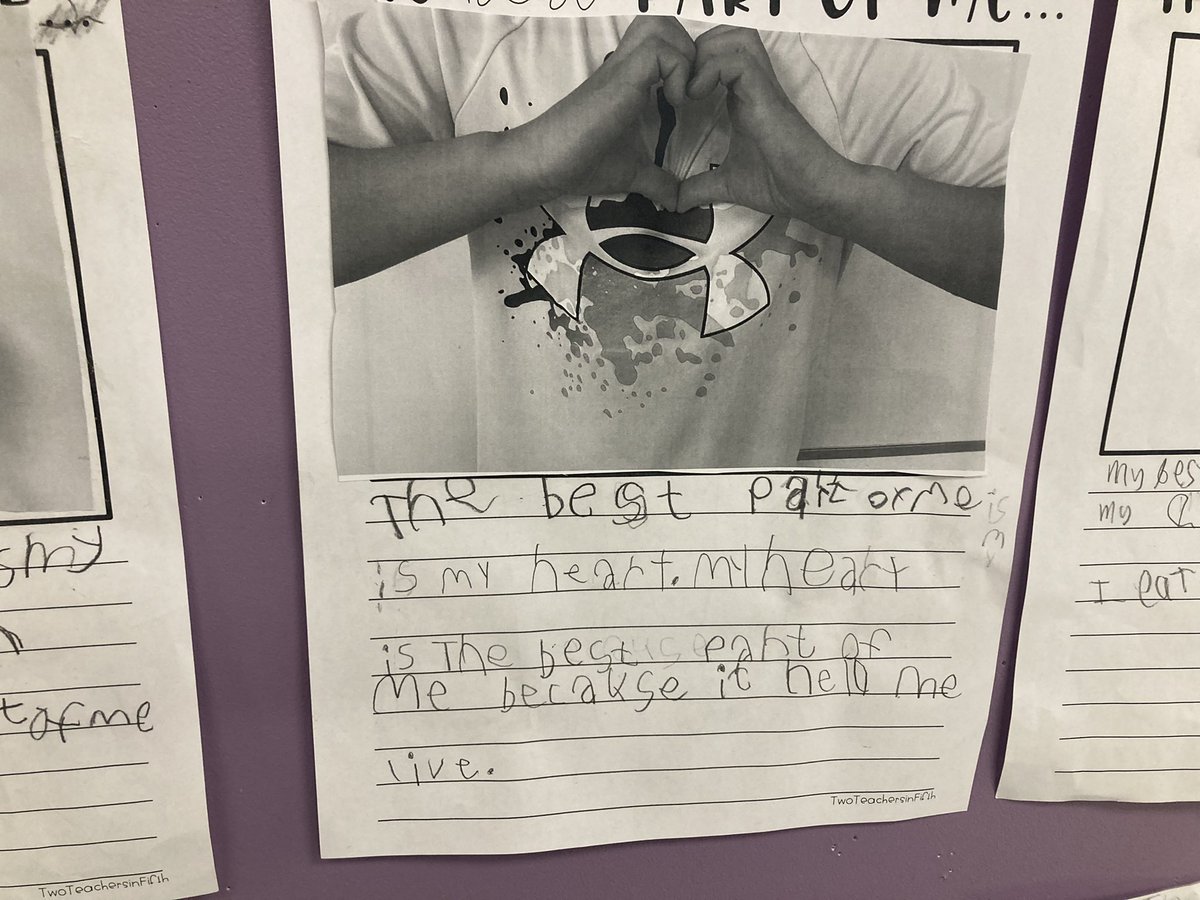 PART OF ME...
The best part or me
is my heart. my heart
is The best part of
me because it help me
live.
TwoTeachersinFifth
smy
t of me
TwoTeachersinFifth
my bes
my
I eat